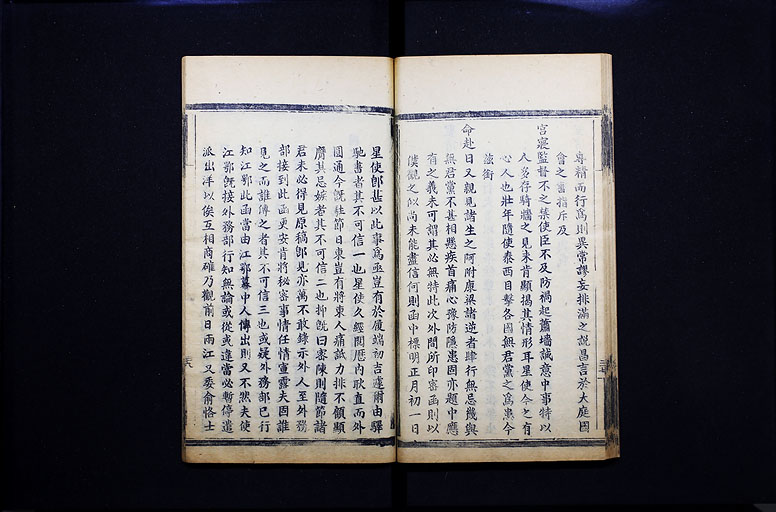 專精而行爲則異常謬妄排滿之說昌言於大庭國
會之書指斥及
宮寢監督不之禁使臣不及防禍起蕭墻誠意中事特以
人多存騎牆之見未肯顯揭其情形耳星使今之有
心人也壯年隨使泰西目擊各國無君黨之爲患今
法銜
命赴日又親見諸生之阿附康梁諸逆者肆行無忌幾與
無君黨不甚相懸疾首痛心豫防隱患固亦題中應
有之義未可謂其必無特此次外間所印密函則以
僕觀之似尚未能盡信何則函中標明正月初一日
星使卽甚以此事爲亟豈有於履端初吉遽爾由驛
馳書者其不可信一也星使久經閱歷內耿直而外
圓通今旣駐節日東豈有將東人痛詆力排不顧顯
膺其忌嫉者其不可信二也抑旣曰密陳則隨節諸
君未必得見原稿卽見亦萬不敢錄示外人至外務
部接到此函更安肯將秘密事情任情宣露夫固誰
見之而誰傳之者其不可信三也或疑外務部已行
知江鄂此函當由江鄂幕中人傳出則又不然夫使
江鄂旣接外務部行知無論或從或違當必暫停遣
派出洋以俟互相商確乃觀前日兩江又委俞恪士